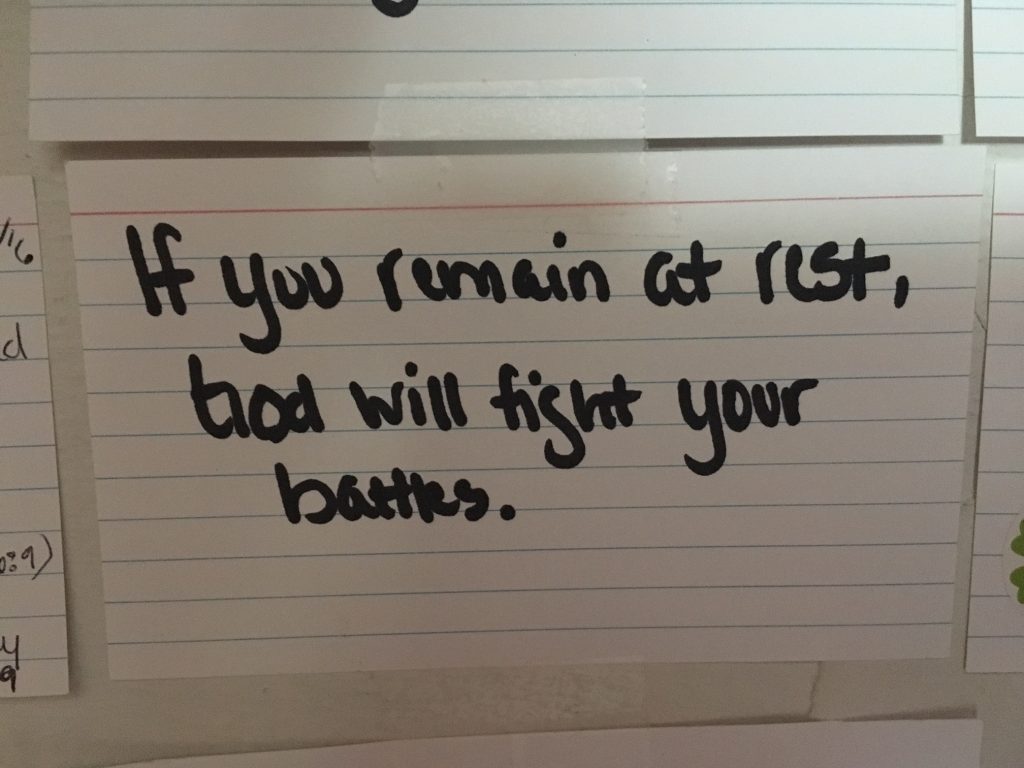 If you remain at rest,
God will fight your
battles.
/16
d
:9)
y
9